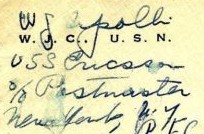 W. J. C. U. S. N.
USS Ericsson
c/o Postmaster
New York, N.Y.